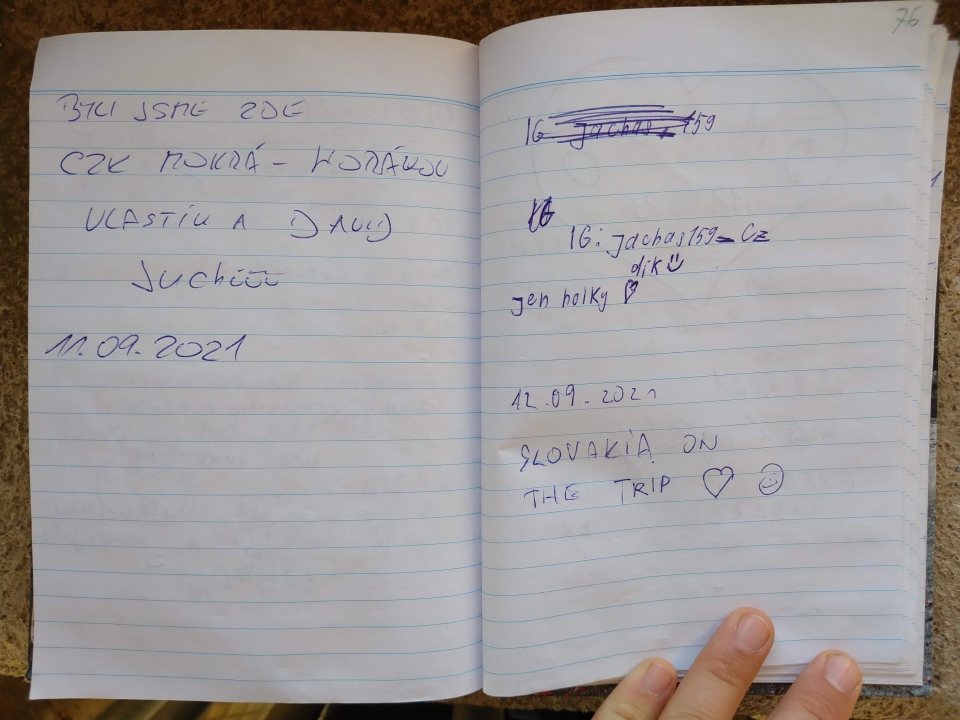 BYLI JSME ZDE
CZK MOKRÁ - HORÁKOV
VLASTÍK A DAVID
JUCHŮŮŮ
11.09.2021
76
IG jachas_159
IG
IG: jachas159_cz
dík
jen holky
12.09.2021
SLOVAKIA ON
THE TRIP